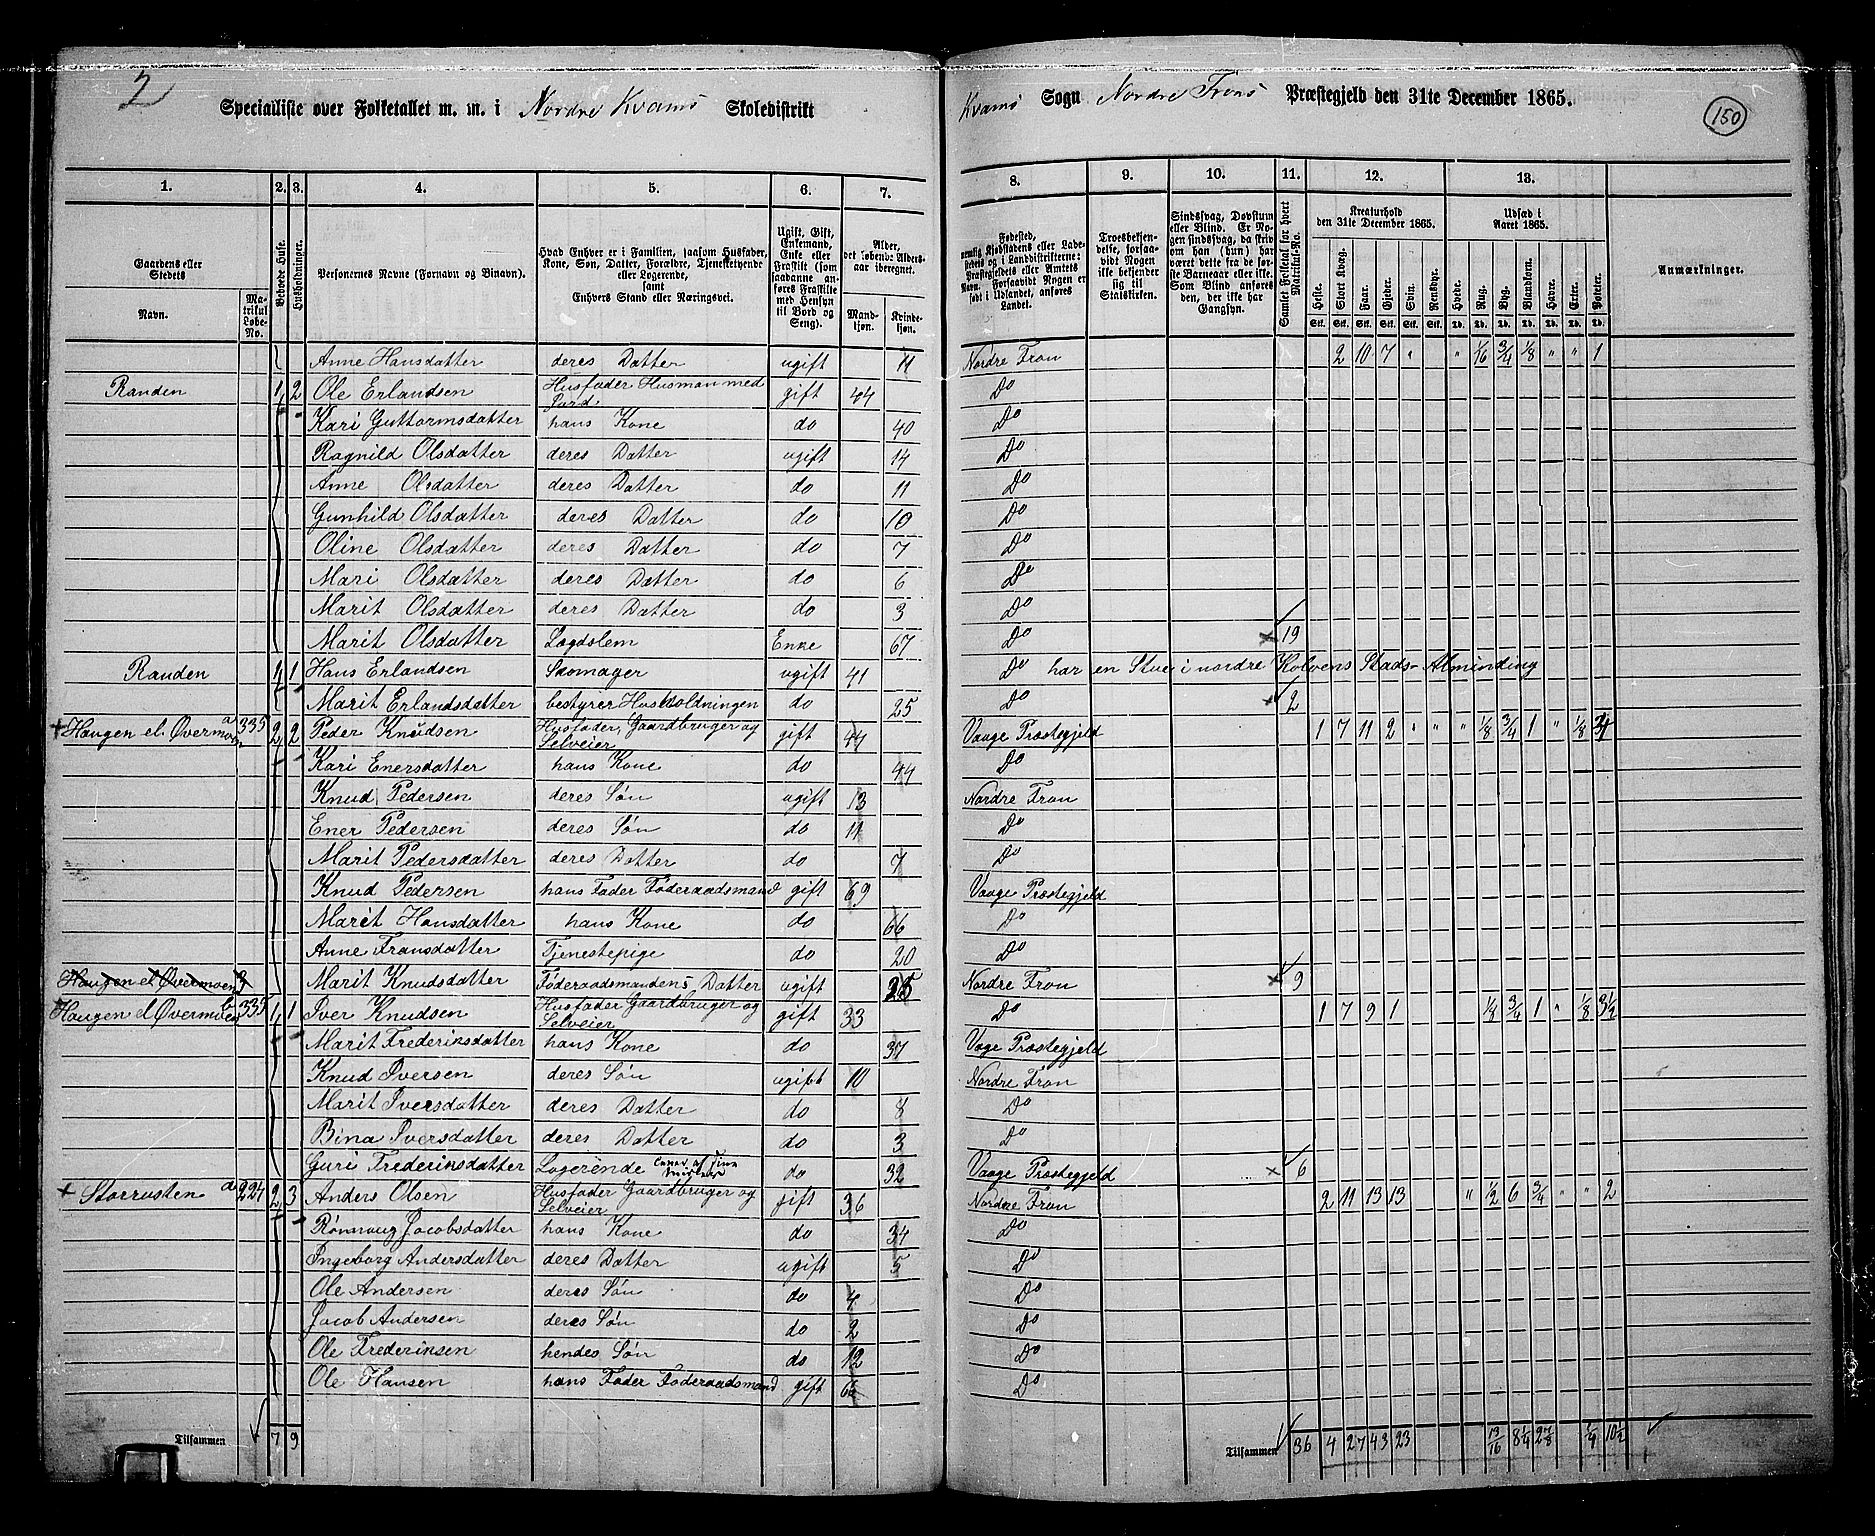 2
Specialliste over Folketallet m. m. i Nordre Kvams Skoledistrikt Kvams Sogn Nordre Frons Præstegjeld den 31te December 1865.
150
1. 2. 3. 4. 5. 6. 7. 8. 9. 10. 11. 12. 13.
Gaardens eller Stedets
Navn.
Matrikul Løbe-No.
Beboede Huse.
Husholdninger.
Personernes Navne (Fornavn og Binavn).
Hvad Enhver er i Familien, saasom Husfader, Kone, Søn, Datter, Forældre, Tjenestetyende eller Logerende,
samt
Enhvers Stand eller Næringsvei.
Ugift, Gift, Enkemand, Enke eller Fraskilt (som saadanne anføres Fraskilte med Hensyn til Bord og Seng).
Alder, det løbende Alders-aar iberegnet.
Mandkjøn.
Kvindekjøn.
Fødested,
nemlig Kjøbstadens eller Ladestedets og i Landdistrikterne: Præstegjeldets eller Amtets Navn. Forsaavidt Nogen er født i Udlandet, anføres Landet.
Troesbekjendelse, forsaavidt Nogen ikke bekjender sig til Statskirken.
Sindssvag, Døvstum eller Blind. Er Nogen sindssvag, da skrives om han (hun) har været dette fra de første Barneaar eller ikke. Som Blind anføres den, der ikke har Gangsyn.
Samlet Folketal for hvert Matrikul-No.
Kreaturhold
den 31te December 1865.
Heste. Stort Kvæg. Faar. Gjeder. Svin. Rensdyr.
Udsæd i
Aaret 1865.
Hvede. Rug. Byg. Blandkorn. Havre. Erter. Poteter.
Anmærkninger.
Anne Hansdatter deres Datter ugift 11 Nordre Fron 2 10 7 " " 1/16 3/4 1/8 " " 1
Randen 1 2 Ole Erlandsen Husfader Husmand med Jord gift 44 Do
Kari Guttormsdatter hans Kone do 40 Do
Ragnild Olsdatter deres Datter ugift 14 Do
Anne Olsdatter deres Datter do 11 Do
Gunhild Olsdatter deres Datter do 10 Do
Oline Olsdatter deres Datter do 7 Do
Mari Olsdatter deres Datter do 6 Do
Marit Olsdatter deres Datter do 3 Do
Marit Olsdatter Lægdslem Enke 67 Do x 19
Randen 1 1 Hans Erlandsen Skomager ugift 41 Do har en Stue i nordre Kolvens Stads-Alminding
Marit Erlandsdatter bestyrer Husholdningen do 25 Do x 2
+ Haugen el. Øvermoen a 335 2 2 Peder Knudsen Husfader, Gaardbruger og Selveier gift 44 Vaage Præstegjeld 1 7 11 2 " " " 1/8 3/4 1 " 1/8
Kari Enersdatter hans Kone do 44 Do
Knud Pedersen deres Søn ugift 13 Nordre Fron
Ener Pedersen deres Søn do 11 Do
Marit Pedersdatter deres Datter do 7 Do
Knud Pedersen hans Fader Føderaadsmand gift 69 Vaage Præstegjeld
Marit Hansdatter hans Kone do 66 Do
Anne Fransdatter Tjenestepige do 20 Do
Haugen el. Øvermoen Marit Knudsdatter Føderaadsmandens Datter ugift Nordre Fron x 9
Haugen el Øvermoen b 335 1 1 Iver Knudsen Husfader Gaardbruger og Selveier gift 33 Do 1 7 9 1 1/8 3/4 1 " 1/8 3 1/2
Marit Frederiksdatter hans Kone do 37 Vage Præstegjeld
Knud Iversen deres Søn ugift 10 Nordre Fron
Marit Iversdatter deres Datter do 8 Do
Bina Iversdatter deres Datter do 3 Do
Guri Frederiksdatter Logerende Lever af sine Midler do 32 Vaage Præstegjeld x 6
+ Storrusten a 224 2 3 Anders Olsen Husfader Gaardbruger og Selveier gift 36 Nordre Fron 2 11 13 13 " 1/2 6 3/4 " " 2
Rønnoug Jacobsdatter hans Kone do 34 Do
Ingeborg Andersdatter deres Datter ugift 5 Do
Ole Andersen deres Søn do 4 Do
Jacob Andersen deres Søn do 2 Do
Ole Frederiksen hendes Søn do 12 Do
Ole Hansen hans Fader Føderaadsmand gift 66 Do
Tilsammen 7 9 Tilsammen 36 4 27 43 23 13/16 8 1/4 2 7/8 1/4 10 1/2